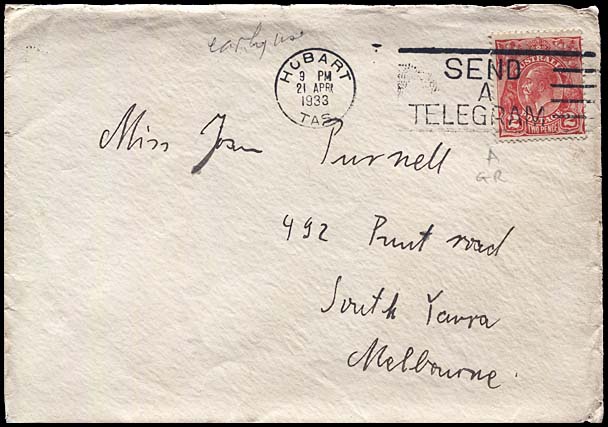 early use
HOBART
9 PM
21 APR
1933
TAS
SEND
A
TELEGRAM
AUSTRALIA
POSTAGE
2 TWO PENCE 2
A
GR
Miss Joan Purnell
492 Punt road
South Yarra
Melbourne.